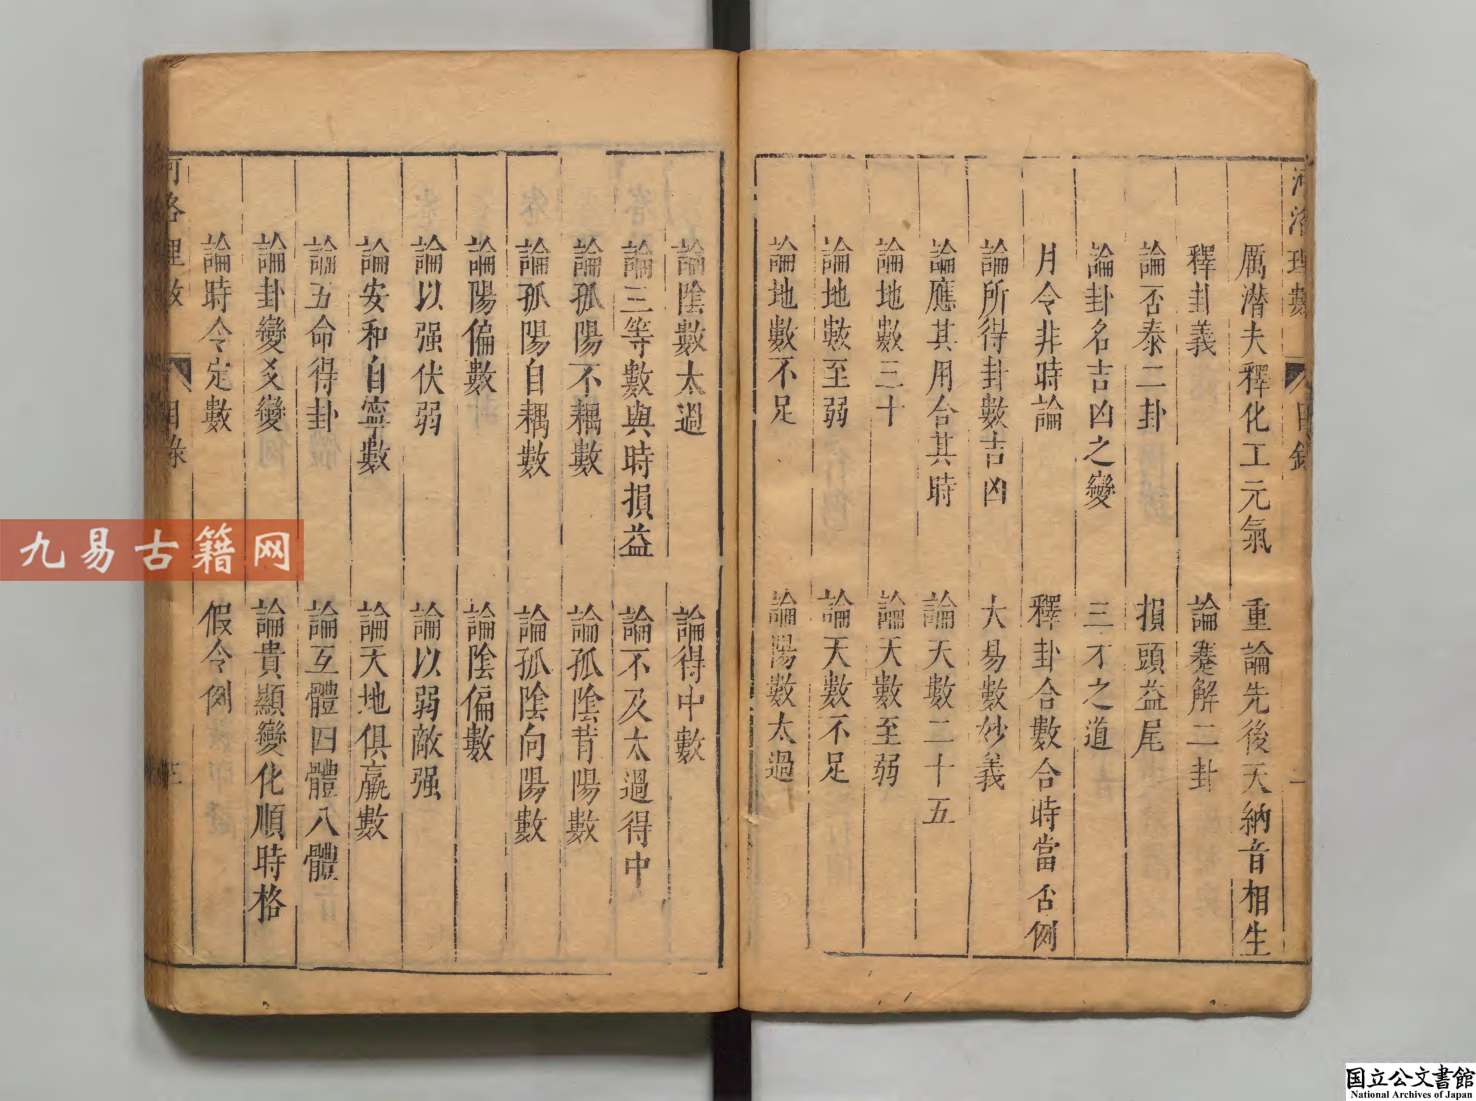 河洛理數 目錄 二
厲潜夫釋化工元氣 重論先後天納音相生
釋卦義 論蹇解二卦
論否泰二卦 損頭益尾
論卦名吉凶之變 三才之道
月令非時論 釋卦合數合時當否例
論所得卦數吉凶 大易數妙義
論應其用合其時 論天數二十五
論地數三十 論天數至弱
論地數至弱 論天數不足
論地數不足 論陽數太過
論陰數太過 論得中數
論三等數與時損益 論不及太過得中
論孤陽不耦數 論孤陰背陽數
論孤陽自耦數 論孤陰向陽數
論陽偏數 論陰偏數
論以强伏弱 論以弱敵强
論安和自寧數 論天地俱羸數
論五命得卦 論互體四體八體
論卦變爻變 論貴顯變化順時格
論時令定數 假令例
河洛理數 目錄
九易古籍网
国立公文書館
National Archives of Japan